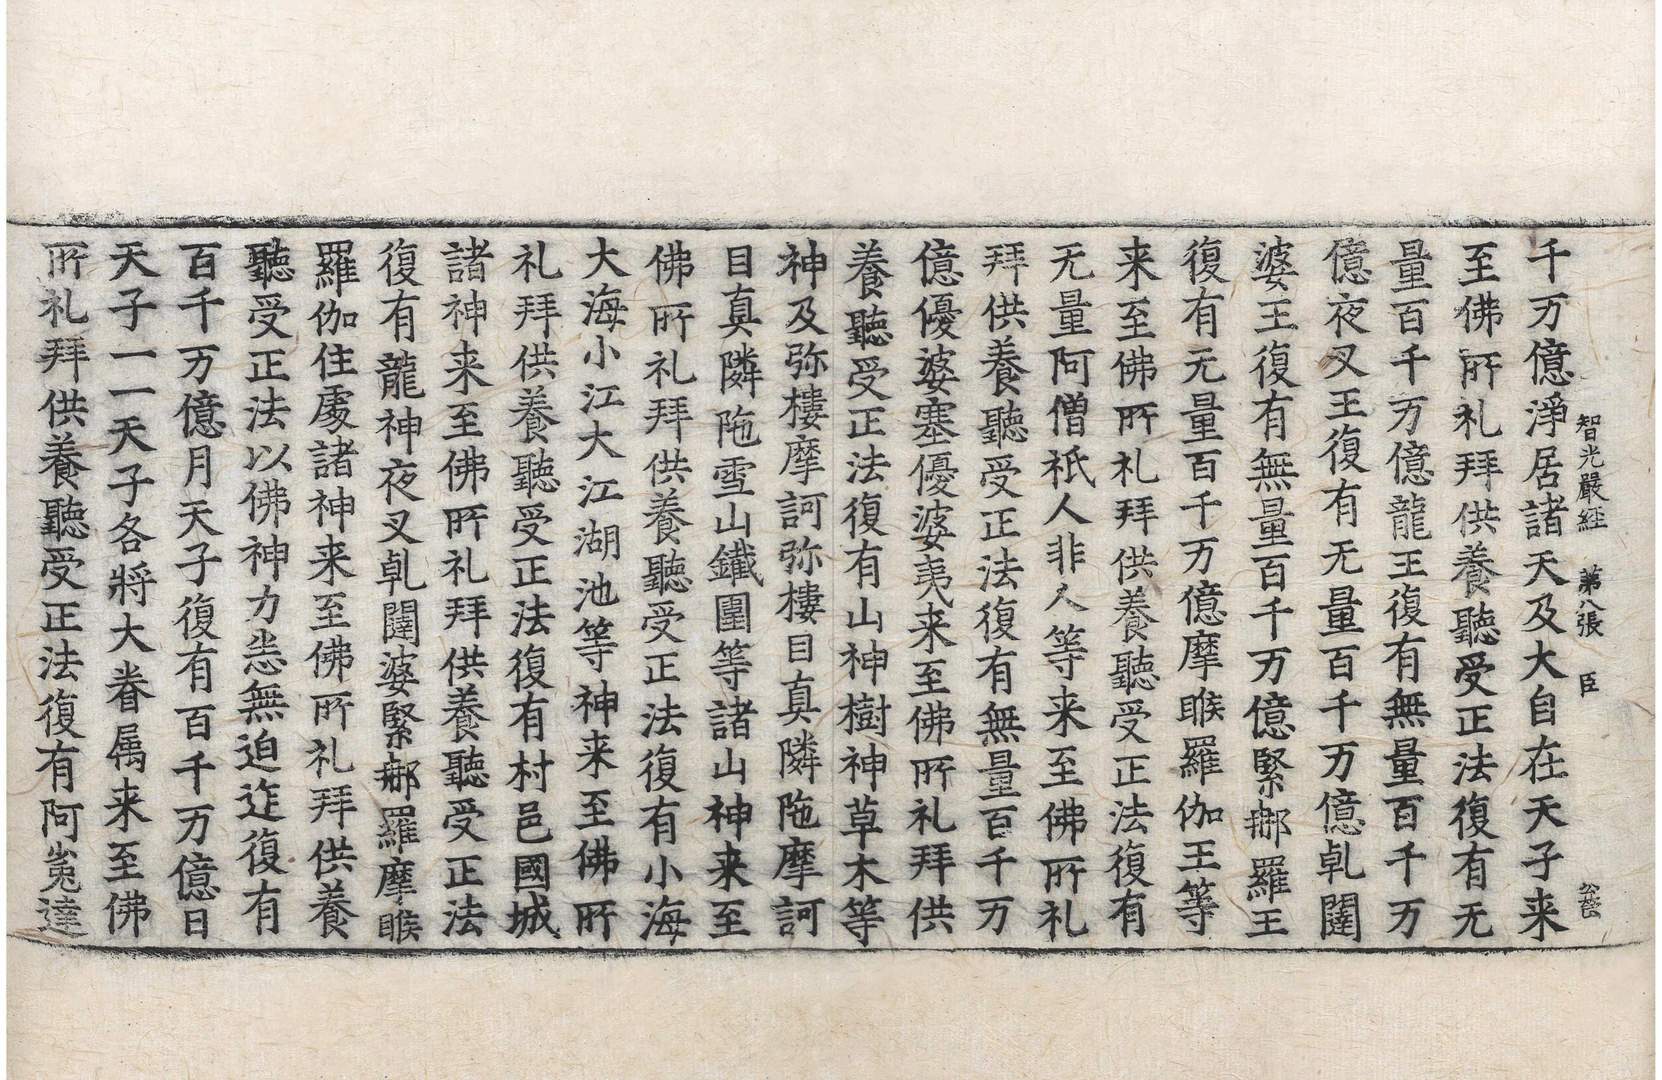 智光嚴経 第八張 臣
千万億淨居諸天及大自在天子来
至佛所礼拜供養聽受正法復有无
量百千万億龍王復有無量百千万
億夜叉王復有无量百千万億乹闥
婆王復有無量百千万億緊𨚗羅王
復有无量百千万億摩睺羅伽王等
来至佛所礼拜供養聽受正法復有
无量阿僧祇人非人等来至佛所礼
拜供養聽受正法復有無量百千万
億優婆塞優婆夷来至佛所礼拜供
養聽受正法復有山神樹神草木等
神及弥樓摩訶弥樓目真隣陁摩訶
目真隣陁雪山鐵圍等諸山神来至
佛所礼拜供養聽受正法復有小海
大海小江大江湖池等神来至佛所
礼拜供養聽受正法復有村邑國城
諸神来至佛所礼拜供養聽受正法
復有龍神夜叉乹闥婆緊𨚗羅摩睺
羅伽住處諸神来至佛所礼拜供養
聽受正法以佛神力悉無迫迮復有
百千万億月天子復有百千万億日
天子一一天子各將大眷属来至佛
所礼拜供養聽受正法復有阿㝹達